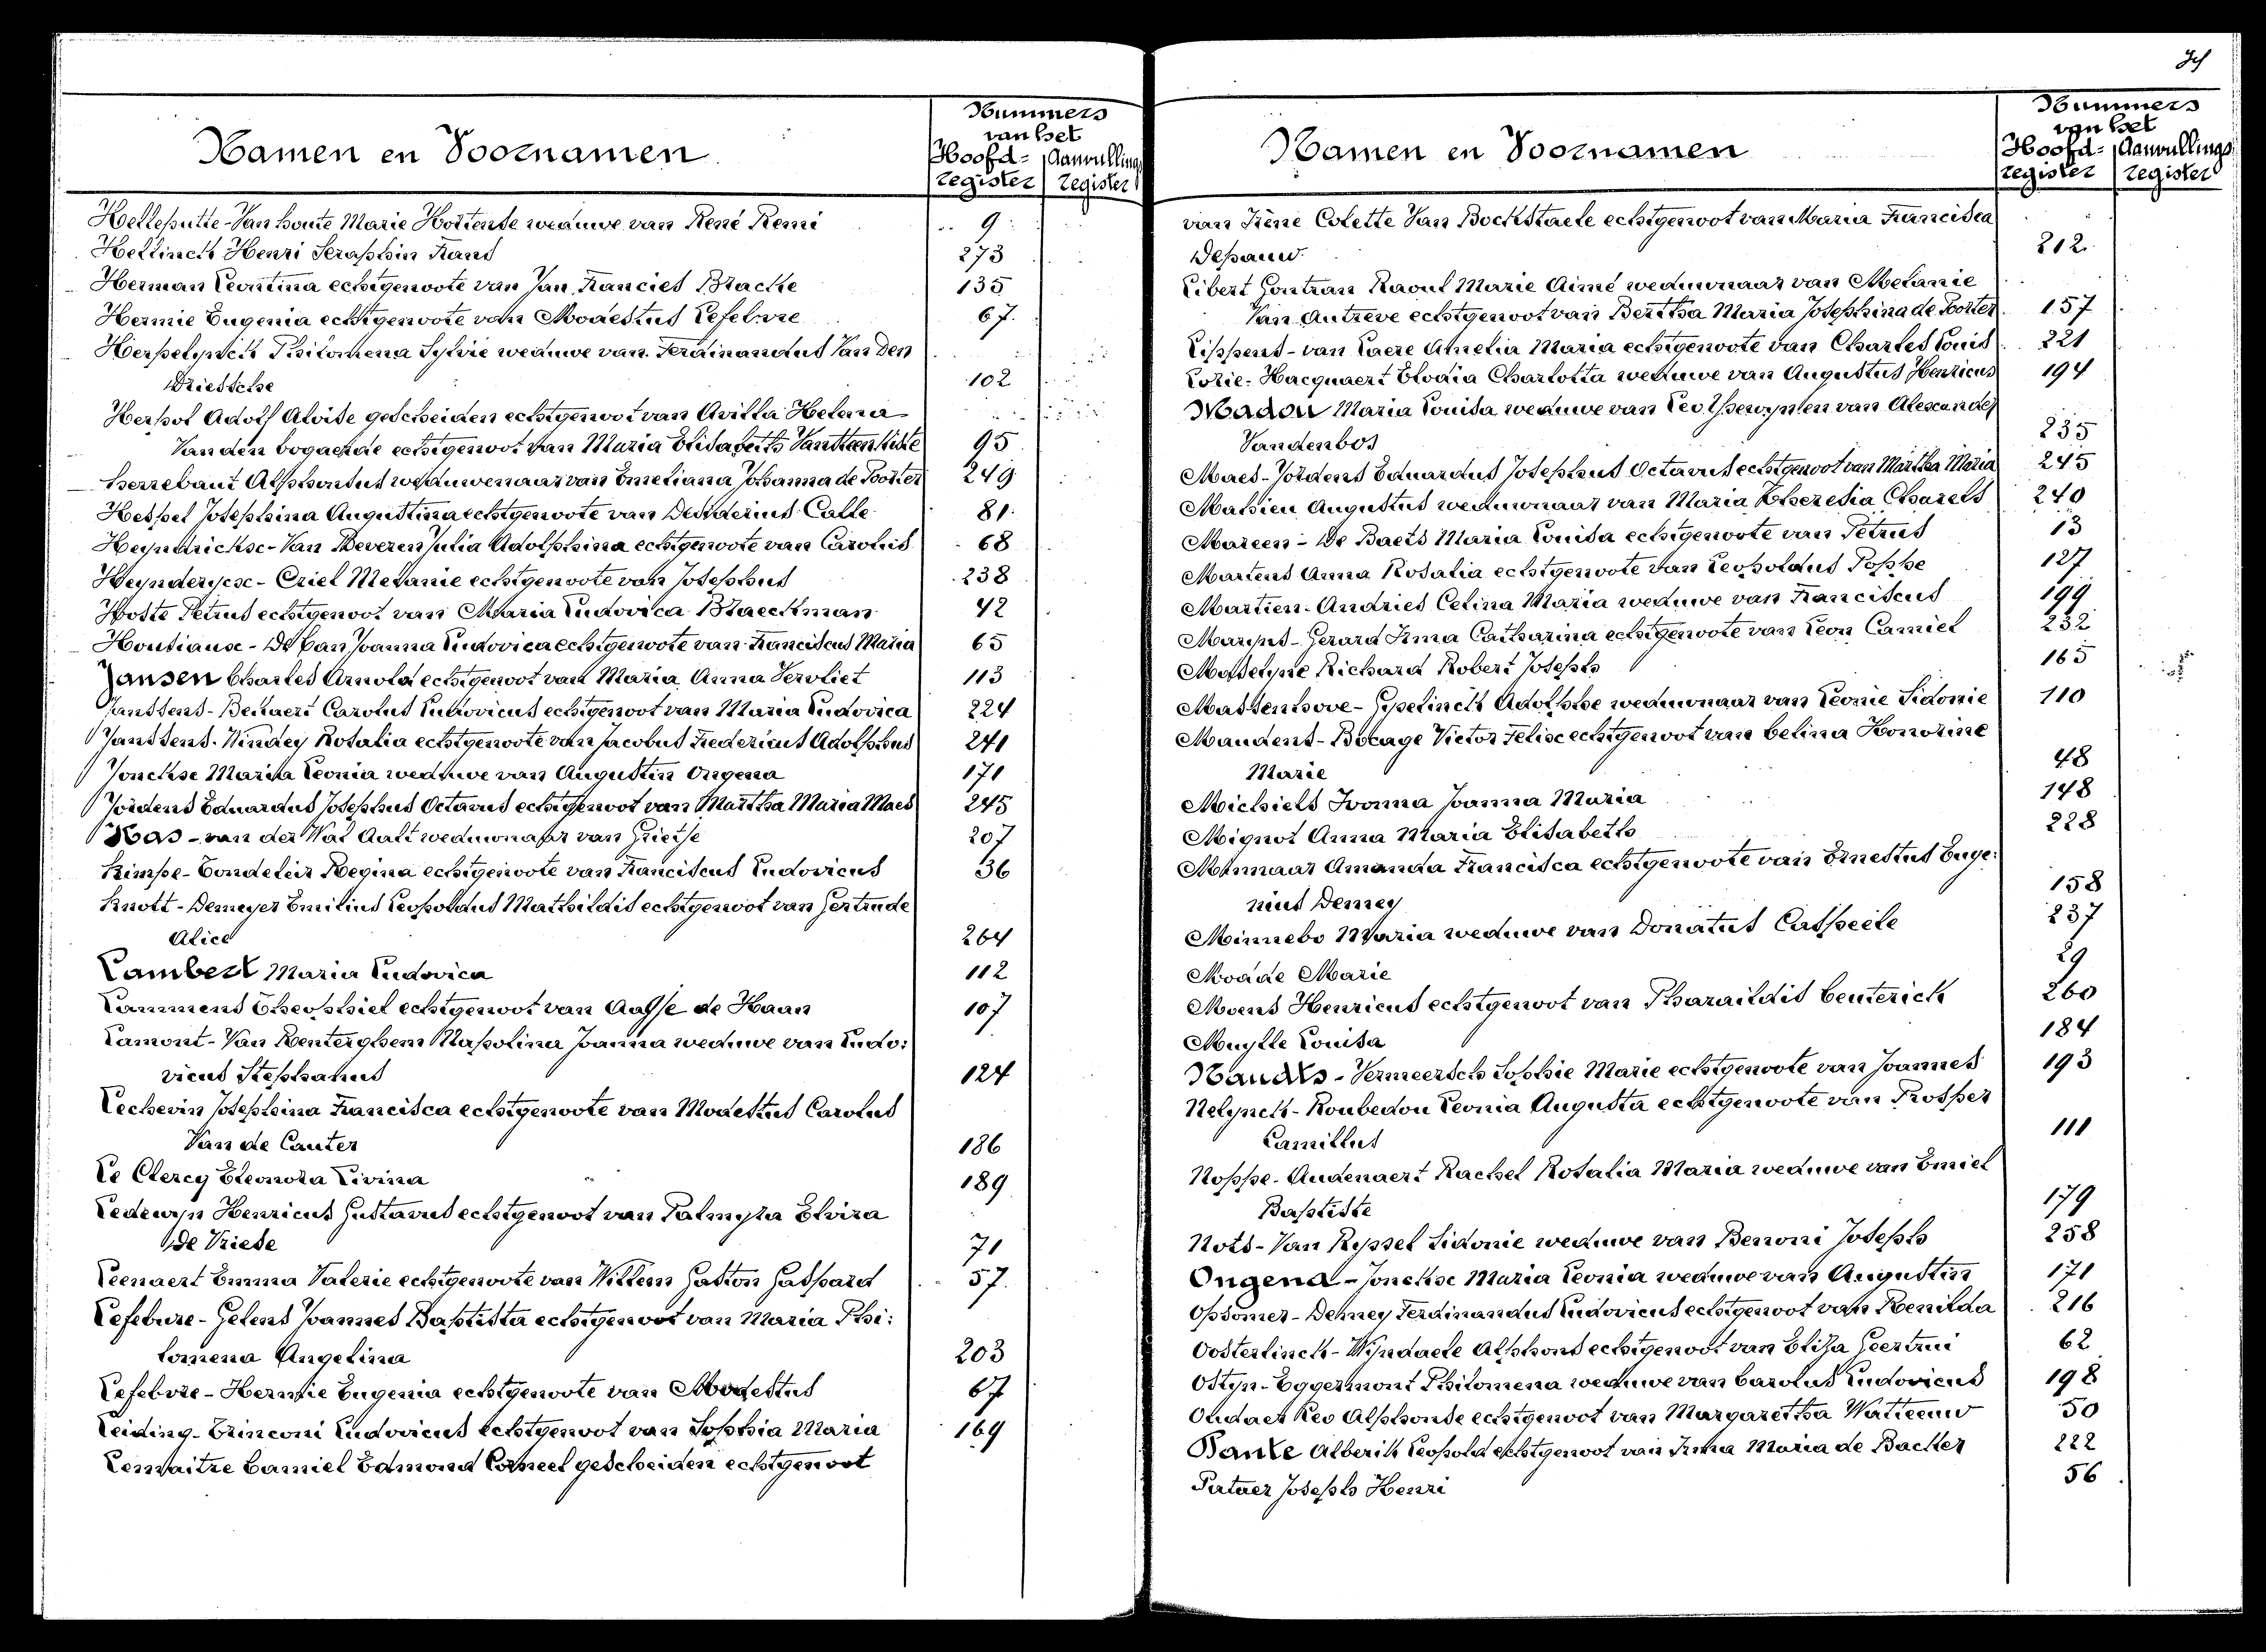 Nummers
van het
Namen en Voornamen
Hoofd- Aanvullings
register register
Hellepulte-Van houte Marie Hortense weduwe van René Remi 9
Hellinck Henri Seraphin Frans 273
Herman Leontina echtgenoote van Jan Francies Bracke 135
Hermie Eugenia echtgenoote van Modestus Lefebvre 67.
Philomena Sylvie weduwe van Ferdinandus Van Den
Driessche 102
Herpol Adolf Aloise gescheiden echtgenoot van Avilla Helena
Van den bogaerde echtgenoot van Maria Elisabeth 95
Herrebaut Alphonsus weduwenaar van Emeliana Johanna de Poorter 249
Hespel Josephina Augustina echtgenoote van Desiderius Calle 81
Heyndrickx-Van Beveren Julia Adolphina echtgenoote van Carolus 68
Heynderycx-Criel Melanie echtgenoote van Josephus 238
Hoste Petrus echtgenoot van Maria Ludovica Braeckman 42
Joanna Ludovica echtgenoote van Franciscus Maria 65
Jansen Charles Arnold echtgenoot van Maria Anna Vervliet 113
Janssens-Bekaert Carolus Ludovicus echtgenoot van Maria Ludovica 224
Janssens-Windey Rosalia echtgenoote van Jacobus Fredericus Adolphus 241
Jonckse Maria Leonia weduwe van Augustin Ongena 171
Jordens Eduardus Josephus Octavus echtgenoot van Martha Maria Maes 245
Kas-van der Wal Aalt weduwnaar van Grietje 207
Kimpe-Condeleir Regina echtgenoote van Franciscus Ludovicus 36
Knott-Demeyer Emilius Leopoldus Mathildis echtgenoot van Gertrude
Alice 264
Lambert Maria Ludovica 112
Lammens Theophiel echtgenoot van Aaltje de Haan 107
Lamont-Van Renterghem Napolina Joanna weduwe van Ludo:
vicus Stephanus 124
Lechevin Josephina Francisca echtgenoote van Modestus Carolus
Van de Cauter 186
Le Clercq Eleonora Livina 189
Ledewyn Henricus Gustavus echtgenoot van Palmyra Elvira
de Vriese 71
Leenaert Emma Valerie echtgenoote van Willem Gaston Gaspard 57.
Lefebure-Gelens Joannes Baptista echtgenoot van Maria Phi:
lomena Angelina 203
Lefebvre-Hermie Eugenia echtgenoote van Modestus 67
Leiding-Trinconi Ludovicus echtgenoot van Sophia Maria 169
Lemaitre Camiel Edmond Corneel gescheiden echtgenoot
Nummers
van het
Namen en Voornamen
Hoofd- Aanvullings
register register
van Irène Colette Van Bockstaele echtgenoot van Maria Francisca
Depauw 212
Libert Gontran Raoul Marie Aimé weduwnaar van Melanie
Van Autreve echtgenoot van Bertha Maria Josephina de Poorter 157
Lippens-van Laere Amelia Maria echtgenoote van Charles Louis 221
Lorie-Hacquaert Elodia Charlotta weduwe van Augustus Henricus 194
Madou Maria Louisa weduwe van Leo van Alexander
Vandenbos 235
Maes-Jordens Eduardus Josephus Octavus echtgenoot van Martha Maria 245
Mahieu Augustus weduwnaar van Maria Theresia Charels 240
Mareen-De Baets Maria Louisa echtgenoote van Petrus 13
Martens Anna Rosalia echtgenoote van Leopoldus Poppe 127
Martien-Andries Celina Maria weduwe van Franciscus 199
Maryns-Gerard Irma Catharina echtgenoote van Leon Camiel 232
Maselyne Richard Robert Joseph 165
Massenhove-Gyselinck Adolphe weduwnaar van Leonie Sidonie 110
Maudens-Bocage Victor Felix echtgenoot van Celina Honorine
Marie 48
Michiels Ivonna Joanna Maria 148
Mignot Anna Maria Elisabeth 228
Minnaar Amanda Francisca echtgenoote van Ernestus Euge:
nius Demey 158
Minnebo Maria weduwe van Donatus Casseele 237
Moade Marie 29
Moens Henricus echtgenoot van Pharaildis Ceuterick 260
Muylle Louisa 184
Nauds-Vermeersch Sophie Marie echtgenoote van Joannes 193
Nelynck-Roubedou Leonia Augusta echtgenoote van Prosper
Camillus 111
Noppe-Audenaert Rachel Rosalia Maria weduwe van Emiel
Baptiste 179
Nots-Van Ryssel Sidonie weduwe van Benoni Joseph 258
Ongena-Jonckse Maria Leonia weduwe van Augustin 171
Opsomer-Demey Ferdinandus Ludovicus echtgenoot van Renilda 216
Oosterlinck-Wyndaele Alphons echtgenoot van Eliza Geertrui 62
Ostyn-Eggermont Philomena weduwe van Carolus Ludovicus 198
Oudaer Leo Alphonse echtgenoot van Margaretha Watteeuw 50
Alberik Leopold echtgenoot van Irma Maria de Backer 222
Joseph Henri 56